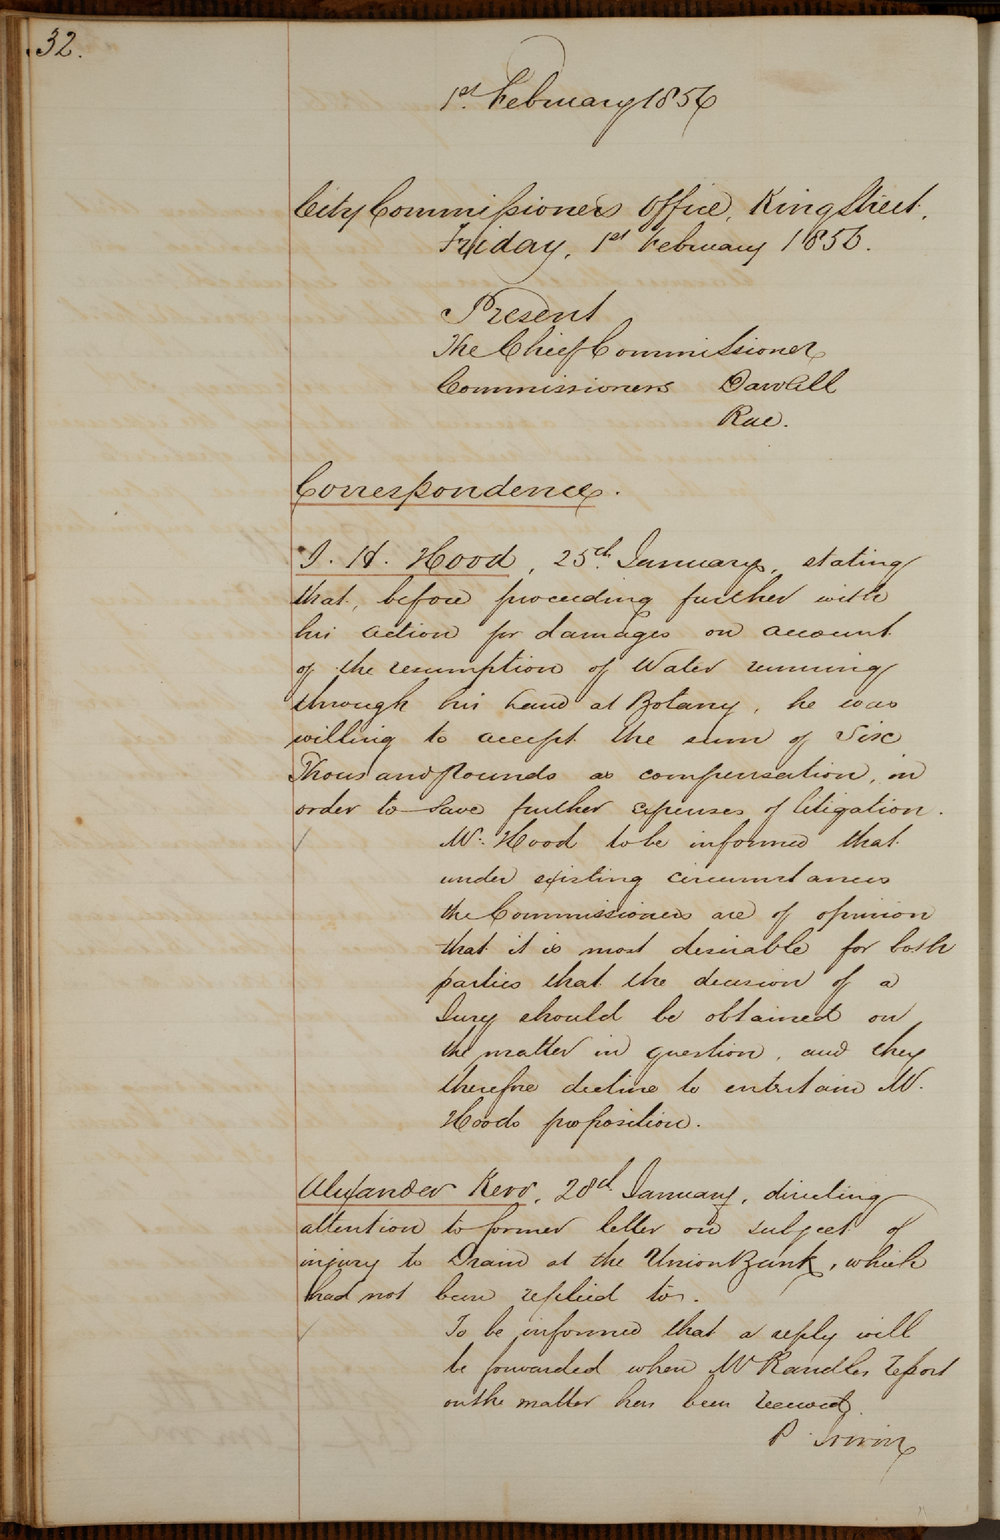 32.
1st. February 1856
City Commissioners Office, King Street,
Friday, 1st February 1856.
Present
The Chief Commissioner
Commissioners Darvall
Rae.
Correspondence.
J. H. Hood, 25th. January, stating
that, before proceeding further with
his action for damages on account
of the resumption of Water running
through his Land at Botany, he was
willing to accept the sum of Six
Thousand Pounds as compensation, in
order to save further expenses of litigation.
Mr. Hood to be informed that
under existing circumstances
the Commissioners are of opinion
that it is most desirable for both
parties that the decision of a
Jury should be obtained on
the matter in question, and they
therefore decline to entertain Mr.
Hoods proposition.
Alexander Kerr, 28th. January, directing
attention to former letter on subject of
injury to Drain at the Union Bank, which
had not been replied to.
To be informed that a reply will
be forwarded when Mr Randles report
on the matter has been received.